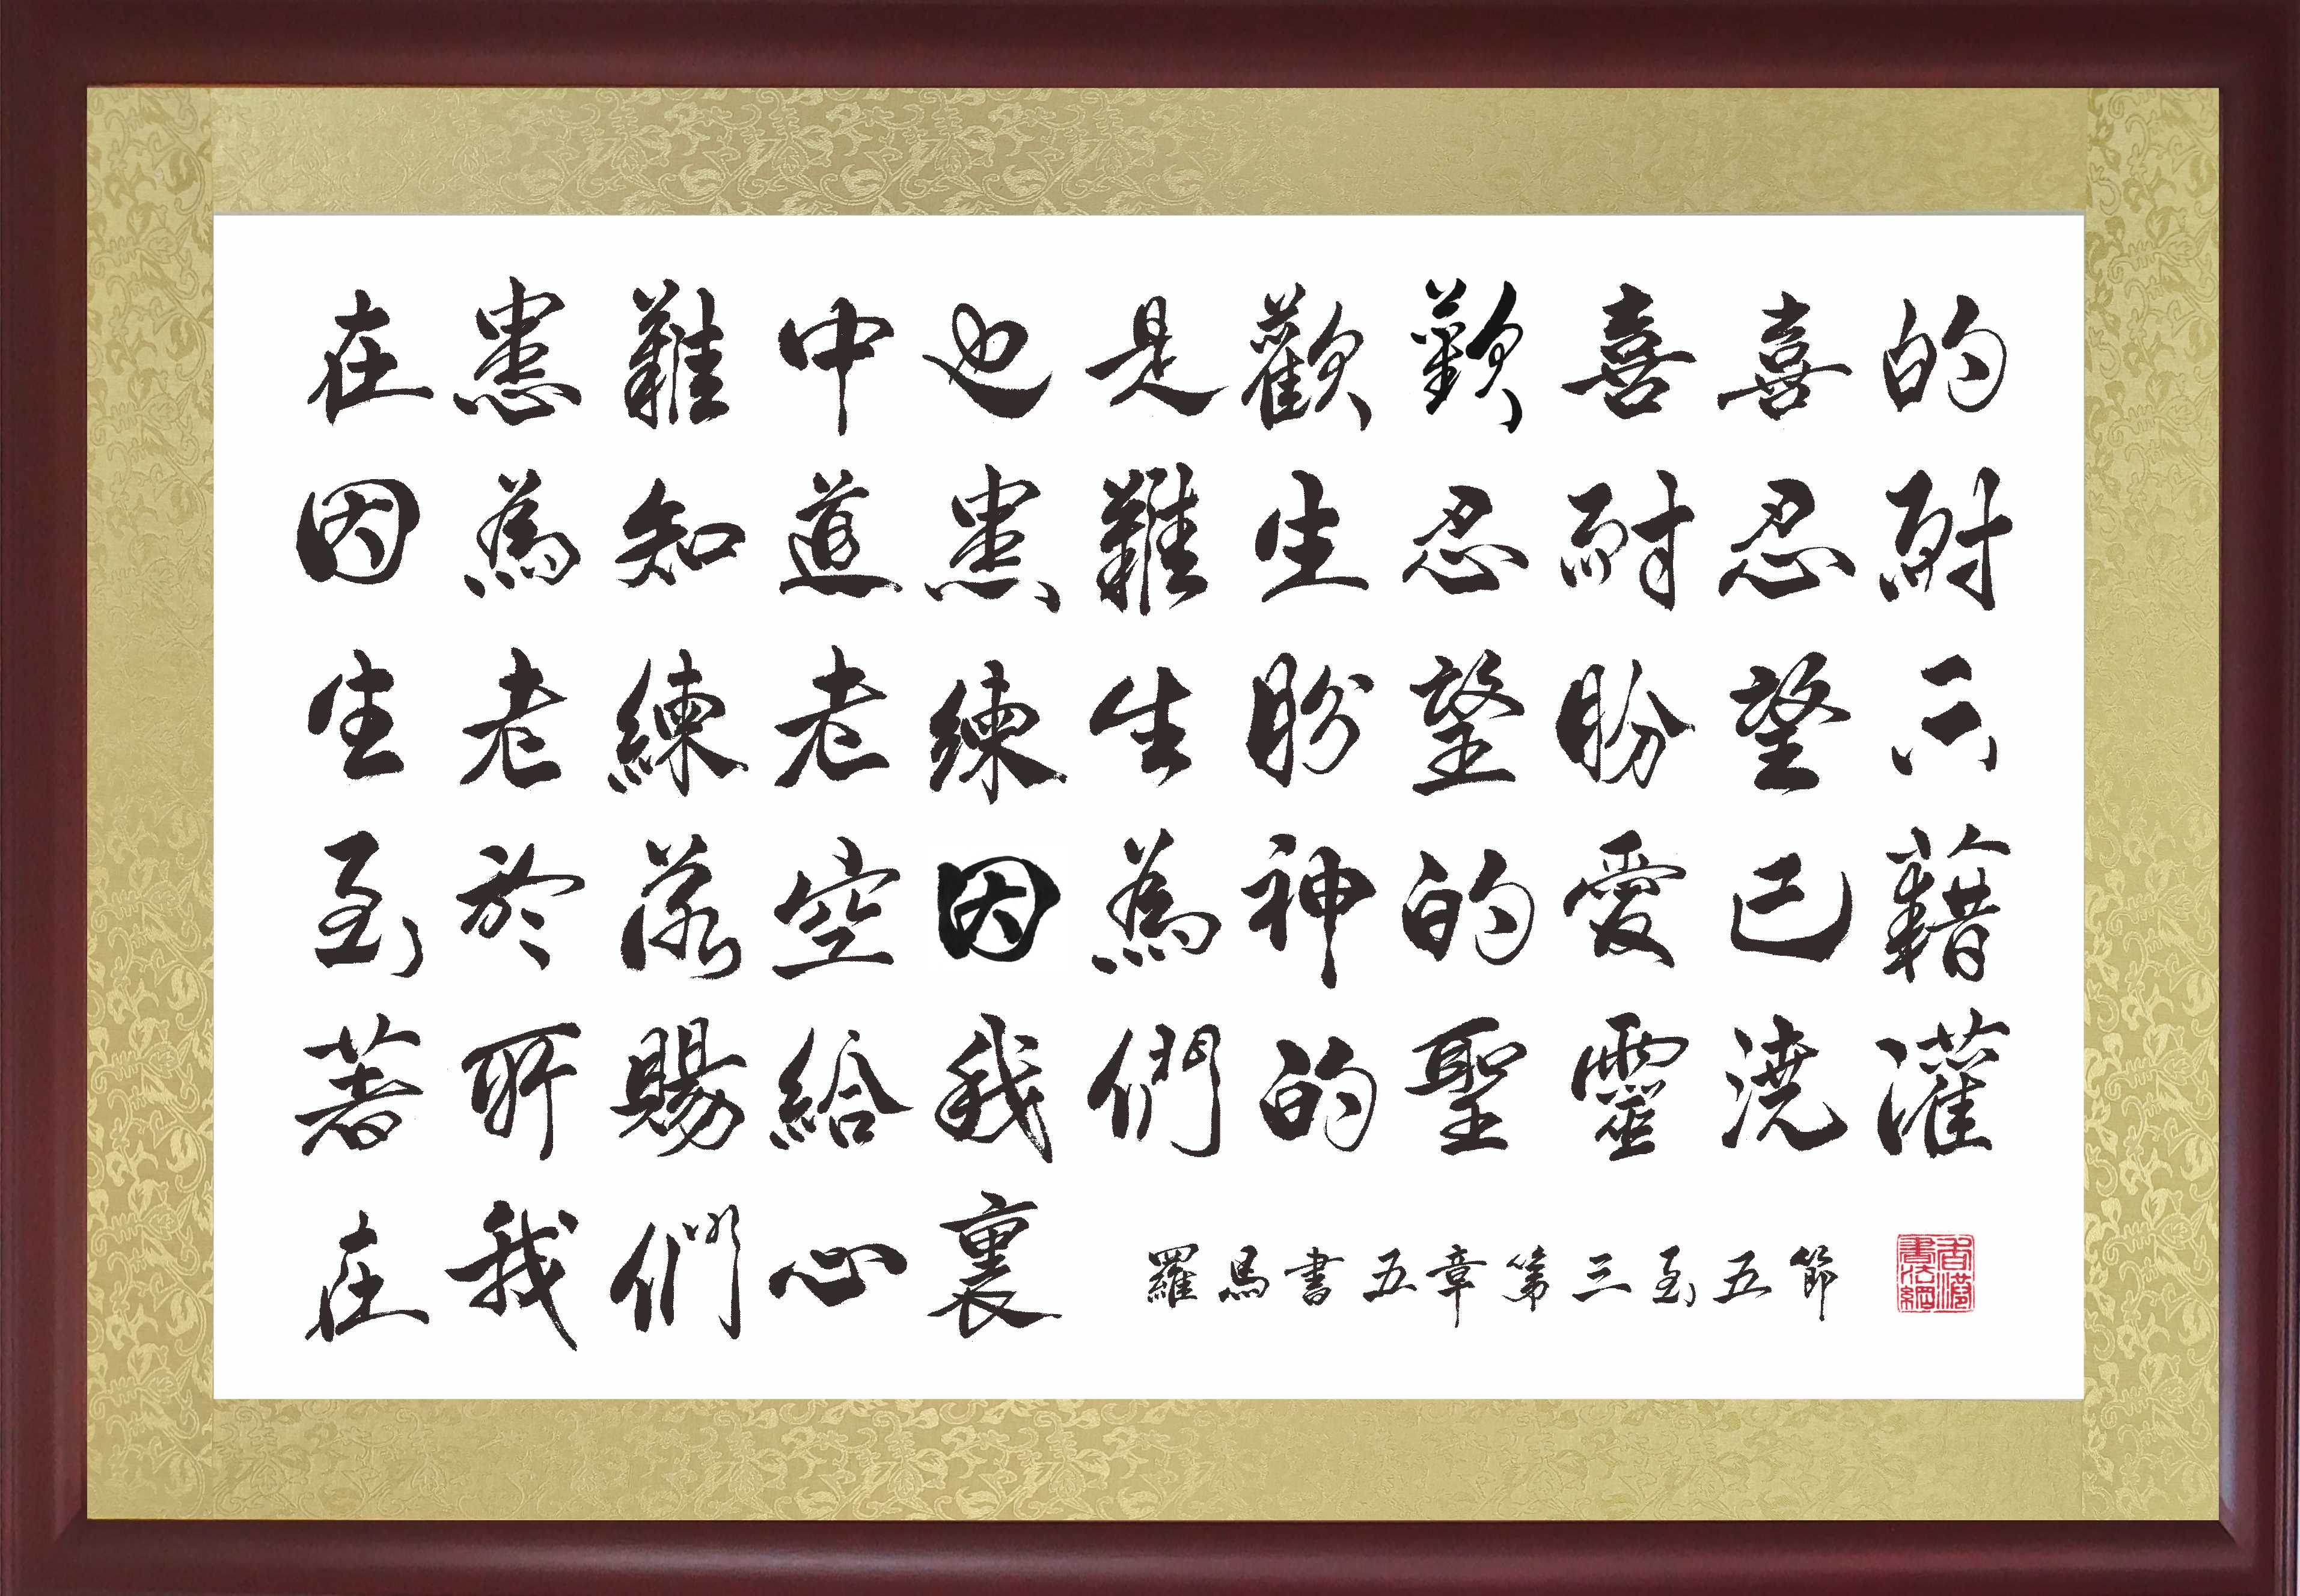 在患難中也是歡歡喜喜的
因為知道患難生忍耐忍耐
生老練老練生盼望盼望不
至於落空因為神的愛已藉
著所賜給我們的聖靈澆灌
在我們心裏
羅馬書五章第三至五節
香港書法網